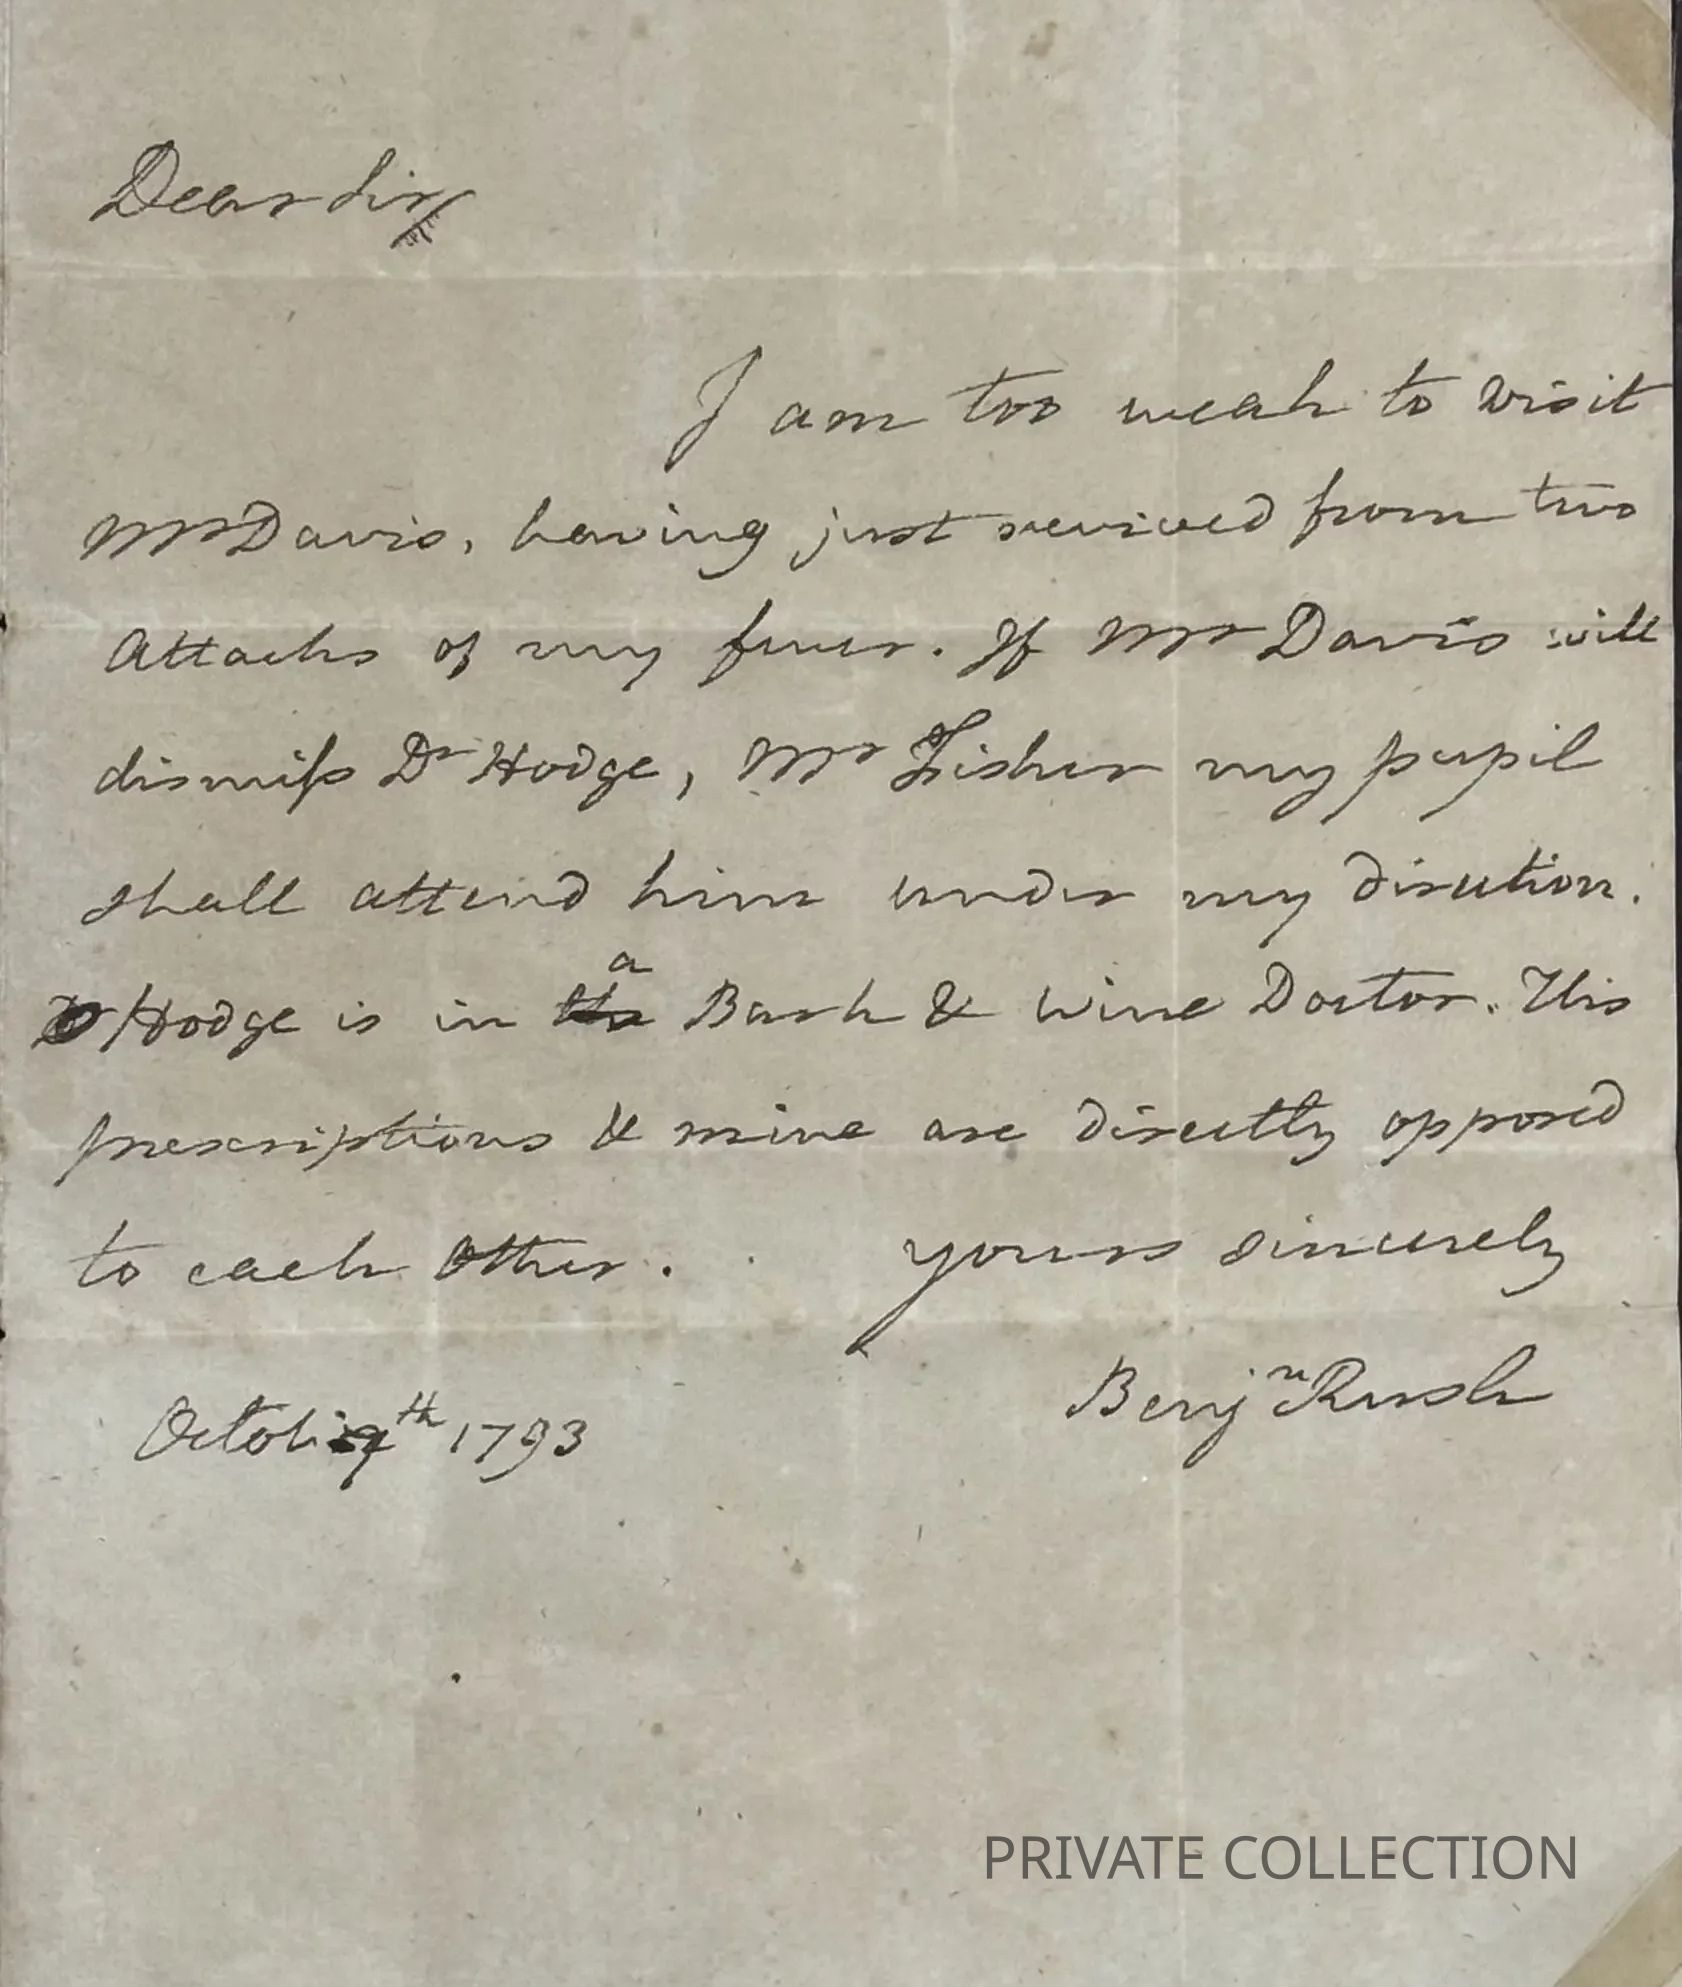 Dear Sir
I am too weak to visit
Mr Davis, having just revived from two
Attacks of my fever. If Mr Davis will
dismiss Dr Hodge, Mr Fisher my pupil
shall attend him under my direction.
Dr Hodge is in a Bark & wine Doctor. His
prescriptions & mine are directly opposed
to each other. yours sincerely
Benjn Rush
October 9th 1793
PRIVATE COLLECTION